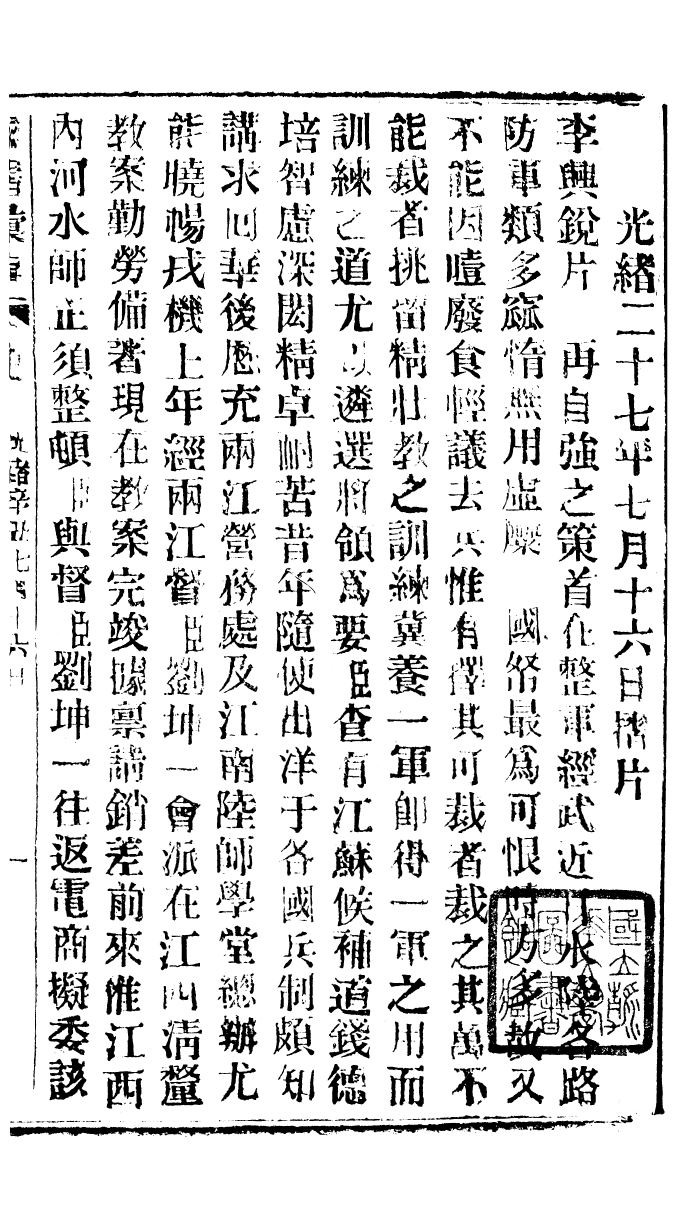 光緒二十七年七月十六日摺片
李興銳片　再自強之策首在整軍經武近日水陸各路
防軍類多窳惰無用虛糜　國帑最為可恨時方多故又
不能因噎廢食輕議去兵惟有擇其可裁者裁之其萬不
能裁者挑留精壯教之訓練冀養一軍卽得一軍之用而
訓練之道尤以遴選將領爲要臣查有江蘇候補道錢德
培智慮深閎精卓耐苦昔年隨使出洋于各國兵制頗知
講求回華後歷充兩江營務處及江南陸師學堂總辦尤
能曉暢戎機上年經兩江督臣劉坤一會派在江西清釐
教案勤勞備著現在教案完竣據稟請銷差前來惟江西
內河水師正須整頓臣與督臣劉坤一往返電商擬委該
光緒辛丑七月十六日
一